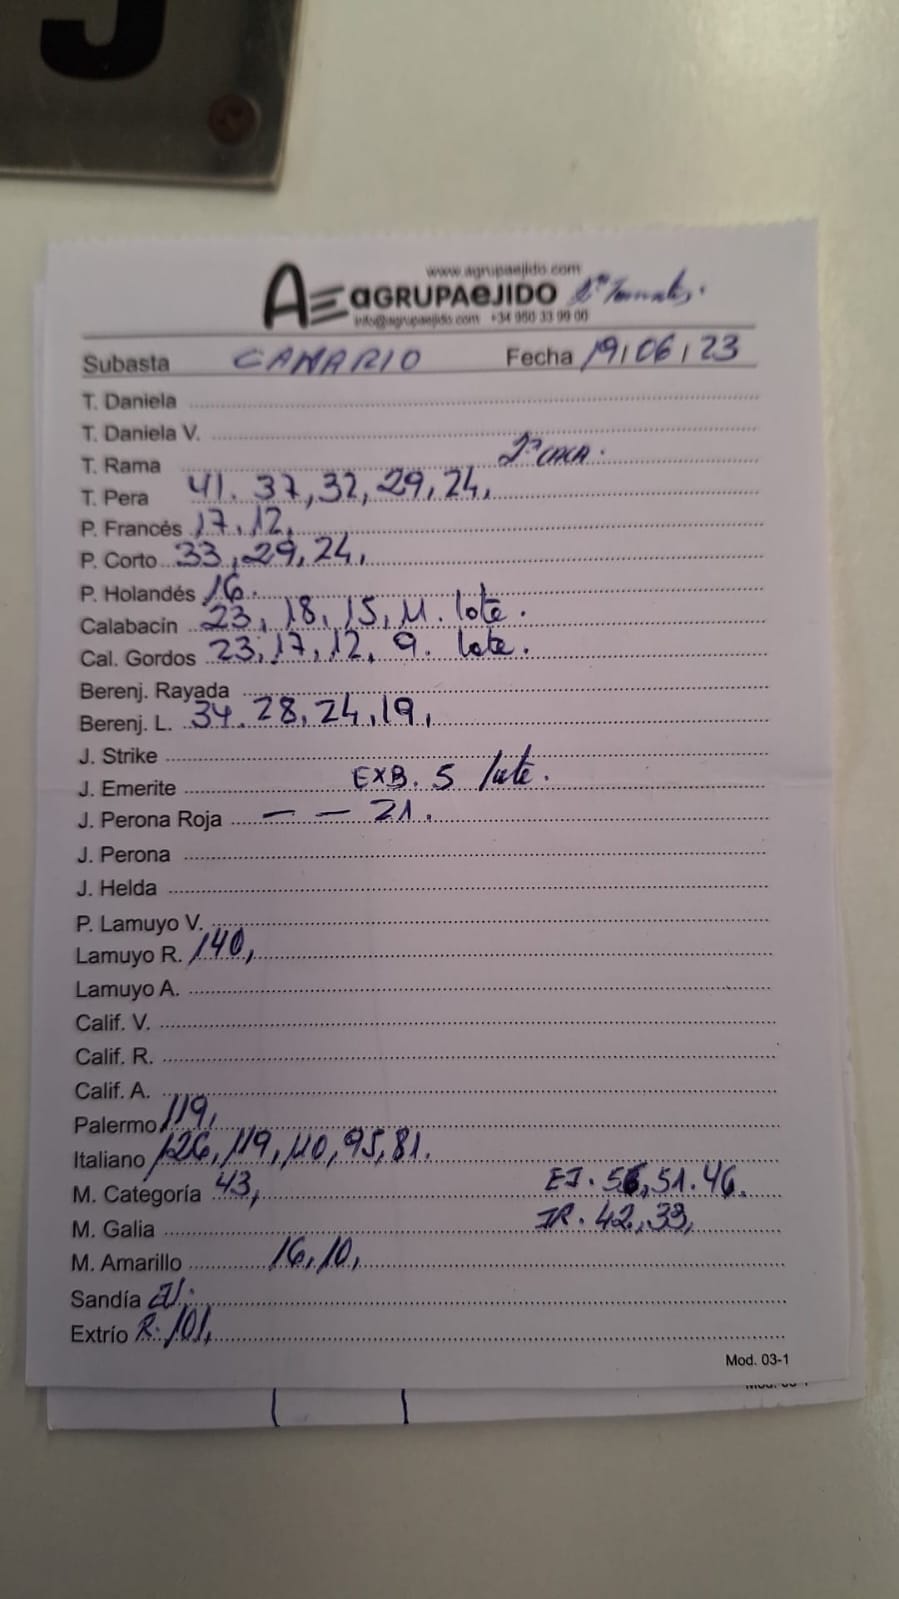 www.agrupaejido.com
AE aGRUPAeJIDO
info@agrupaejido.com +34 950 33 99 00
Subasta CANARIO Fecha 19/06/23
T. Daniela
T. Daniela V.
T. Rama
T. Pera 41. 37, 32, 29, 24,
P. Francés 17, 12,
P. Corto 33, 29, 24,
P. Holandés 16.
Calabacín 23, 18, 15, 11. lote.
Cal. Gordos 23, 17, 12, 9. lote.
Berenj. Rayada
Berenj. L. 34. 28, 24, 19,
J. Strike
J. Emerite EXB. 5 lote.
J. Perona Roja — — 21.
J. Perona
J. Helda
P. Lamuyo V.
Lamuyo R. 140,
Lamuyo A.
Calif. V.
Calif. R.
Calif. A.
Palermo 119,
Italiano 126, 119, 110, 95, 81.
M. Categoría 43, EJ. 56, 51. 46.
M. Galia JR. 42, 33,
M. Amarillo 16, 10,
Sandía
Extrío R. 101,
Mod. 03-1